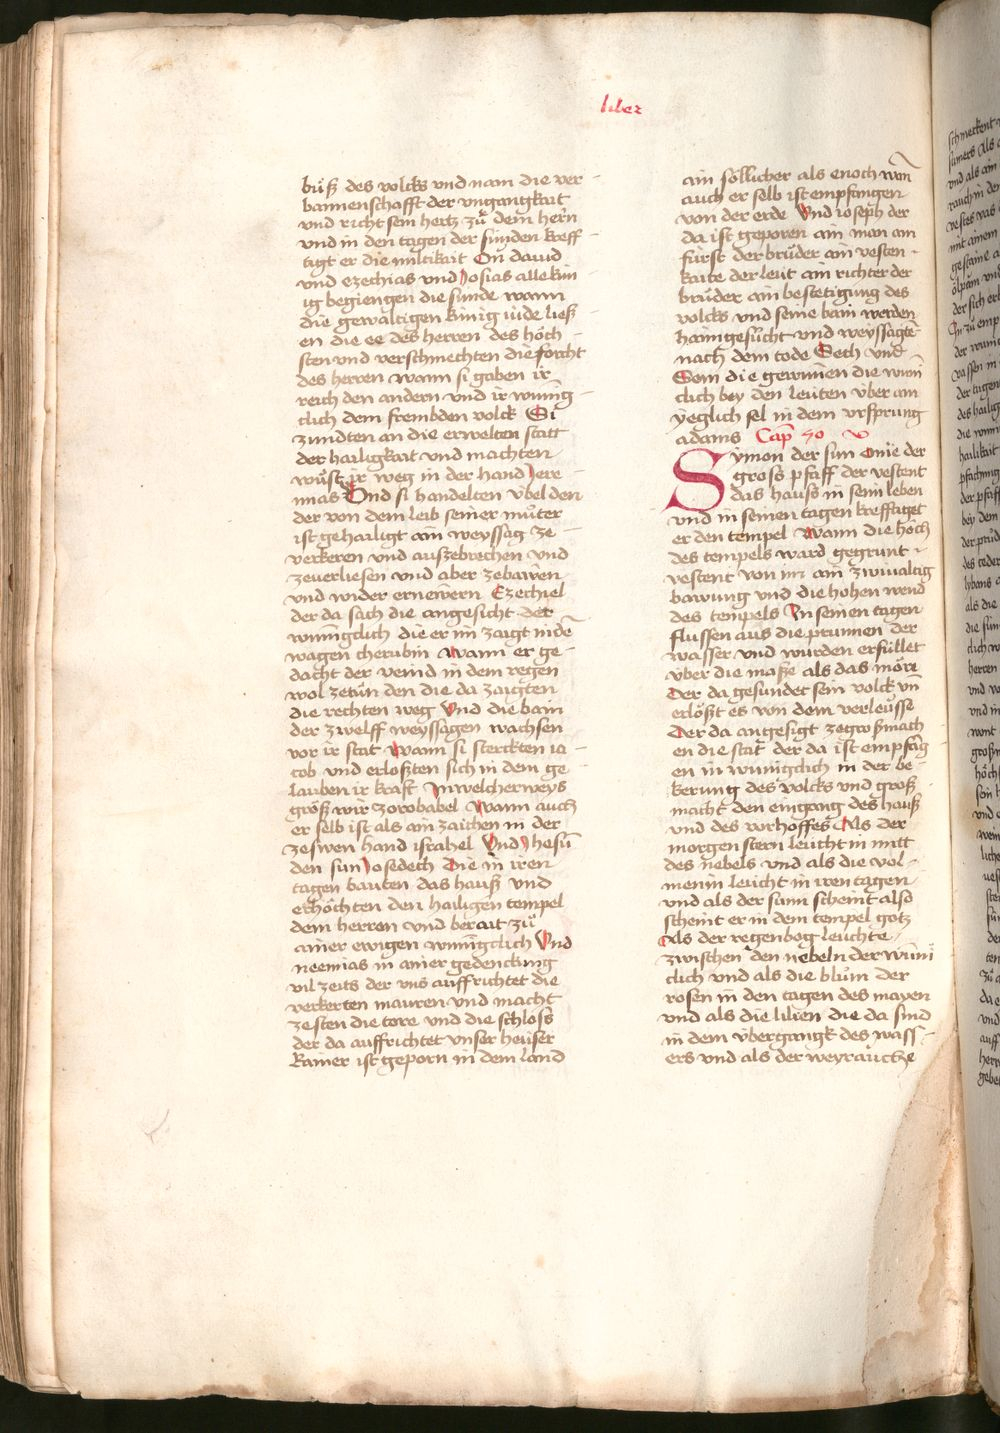 liber
buͦß des volcks vnd nam die ver
bannenschafft der vngangkait
vnd richt sein hertz zuͦ dem hern
vnd in den tagen der sunden kreff
tigt er die miltikait On dauid
vnd ezechias vnd Josias alle kún
ig begiengen die sunde wann
die gewaltigen kúnig iude ließ
en die ee des herren des hoͤch
sten vnd verschmechten die forcht
des herren wann si gaben ir
reich den andern vnd ir wunͣig
clich dem frembden volck Si
zundten an die erwelten statt
der hailigkait vnd machten
wuͦst ir weg in der hand Jere
mias Vnd si handelten vbel den
der von dem leib seiner muͦter
ist gehailigt ain weyssag ze
verkeren vnd auszebrechen vnd
zeuerliesen vnd aber zebawen
vnd wider ernewern Ezechiel
der da sach die angesicht der
wunnigclich die er im zaigt in dē
wagen cherubin Wann er ge
dacht der veind in dem regen
wol zetun den die da zaigten
die rechten weg Vnd die bain
der zwelff weyssagen wachsen
vor ir stat Wann si sterckten ia
cob vnd erloßten sich in dem ge
lauben ir kraft In welcher weys
groͤß wir zorobabel Wann auch
er selb ist als ain zaichen in der
zeswen hand israhel Vnd Jhesū
den sun Josedech Die in iren
tagen bauten das hauß vnd
erhoͤchten den hailigen tempel
dem herren vnd berait zuͦ
ainer ewigen wunnigclich Vnd
neemias in ainer gedenckung
vil zeits der vns auffrichtet die
verkerten mauren vnd macht
zesten die tore vnd die schloss
der da auffrichtet vnser heuser
Kainer ist geporn in dem land
ain soͤllicher als enoch wañ
auch er selb ist empfangen
von der erde Vnd ioseph der
da ist geporen ain man ain
fúrst der bruͦder ain vesten
kaite der leut ain richter der
bruͦder ain bestetigung des
volcks vnd seine bain werden
haimgesuͦcht vnd weyssagtē
nach dem tode Sech vnd
Sem die gewunen die wunī
clich bey den leuten vber ain
yeglich sel in dem vrsprung
adams Cap 50 v
Symon der sun Onie der
gross pfaff der vestent
das hauss in seim leben
vnd in seinen tagen krefftiget
er den tempel Wann die hoͤch
des tempels ward gegrunt
vestent von im ain zwiualtig
bawung vnd die hohen wend
des tempels In seinen tagen
flussen aus die prunnen der
wasser vnd wurden erfullet
vber die maße als das moͤre
Der da gesundet sein volck vñ
erloͤßt es von dem verleusse
Der da angesigt zegroßmach
en die stat der da ist empfāg
en in wunigclich in der be
kerung des volcks vnd groß
macht den eingang des hauß
vnd des vorhoffes Als der
morgenstern leucht in mitt
des nebels vnd als die vol
menin leucht in iren tagen
vnd als der sunn scheint also
scheint er in dem tempel gotz
Als der regenbog leuchte
zwischen den nebeln der wunī
clich vnd als die bluͦm der
rosen in den tagen des mayen
vnd als die lilien die da sind
in dem vbergangk des wass
ers vnd als der weyrauche